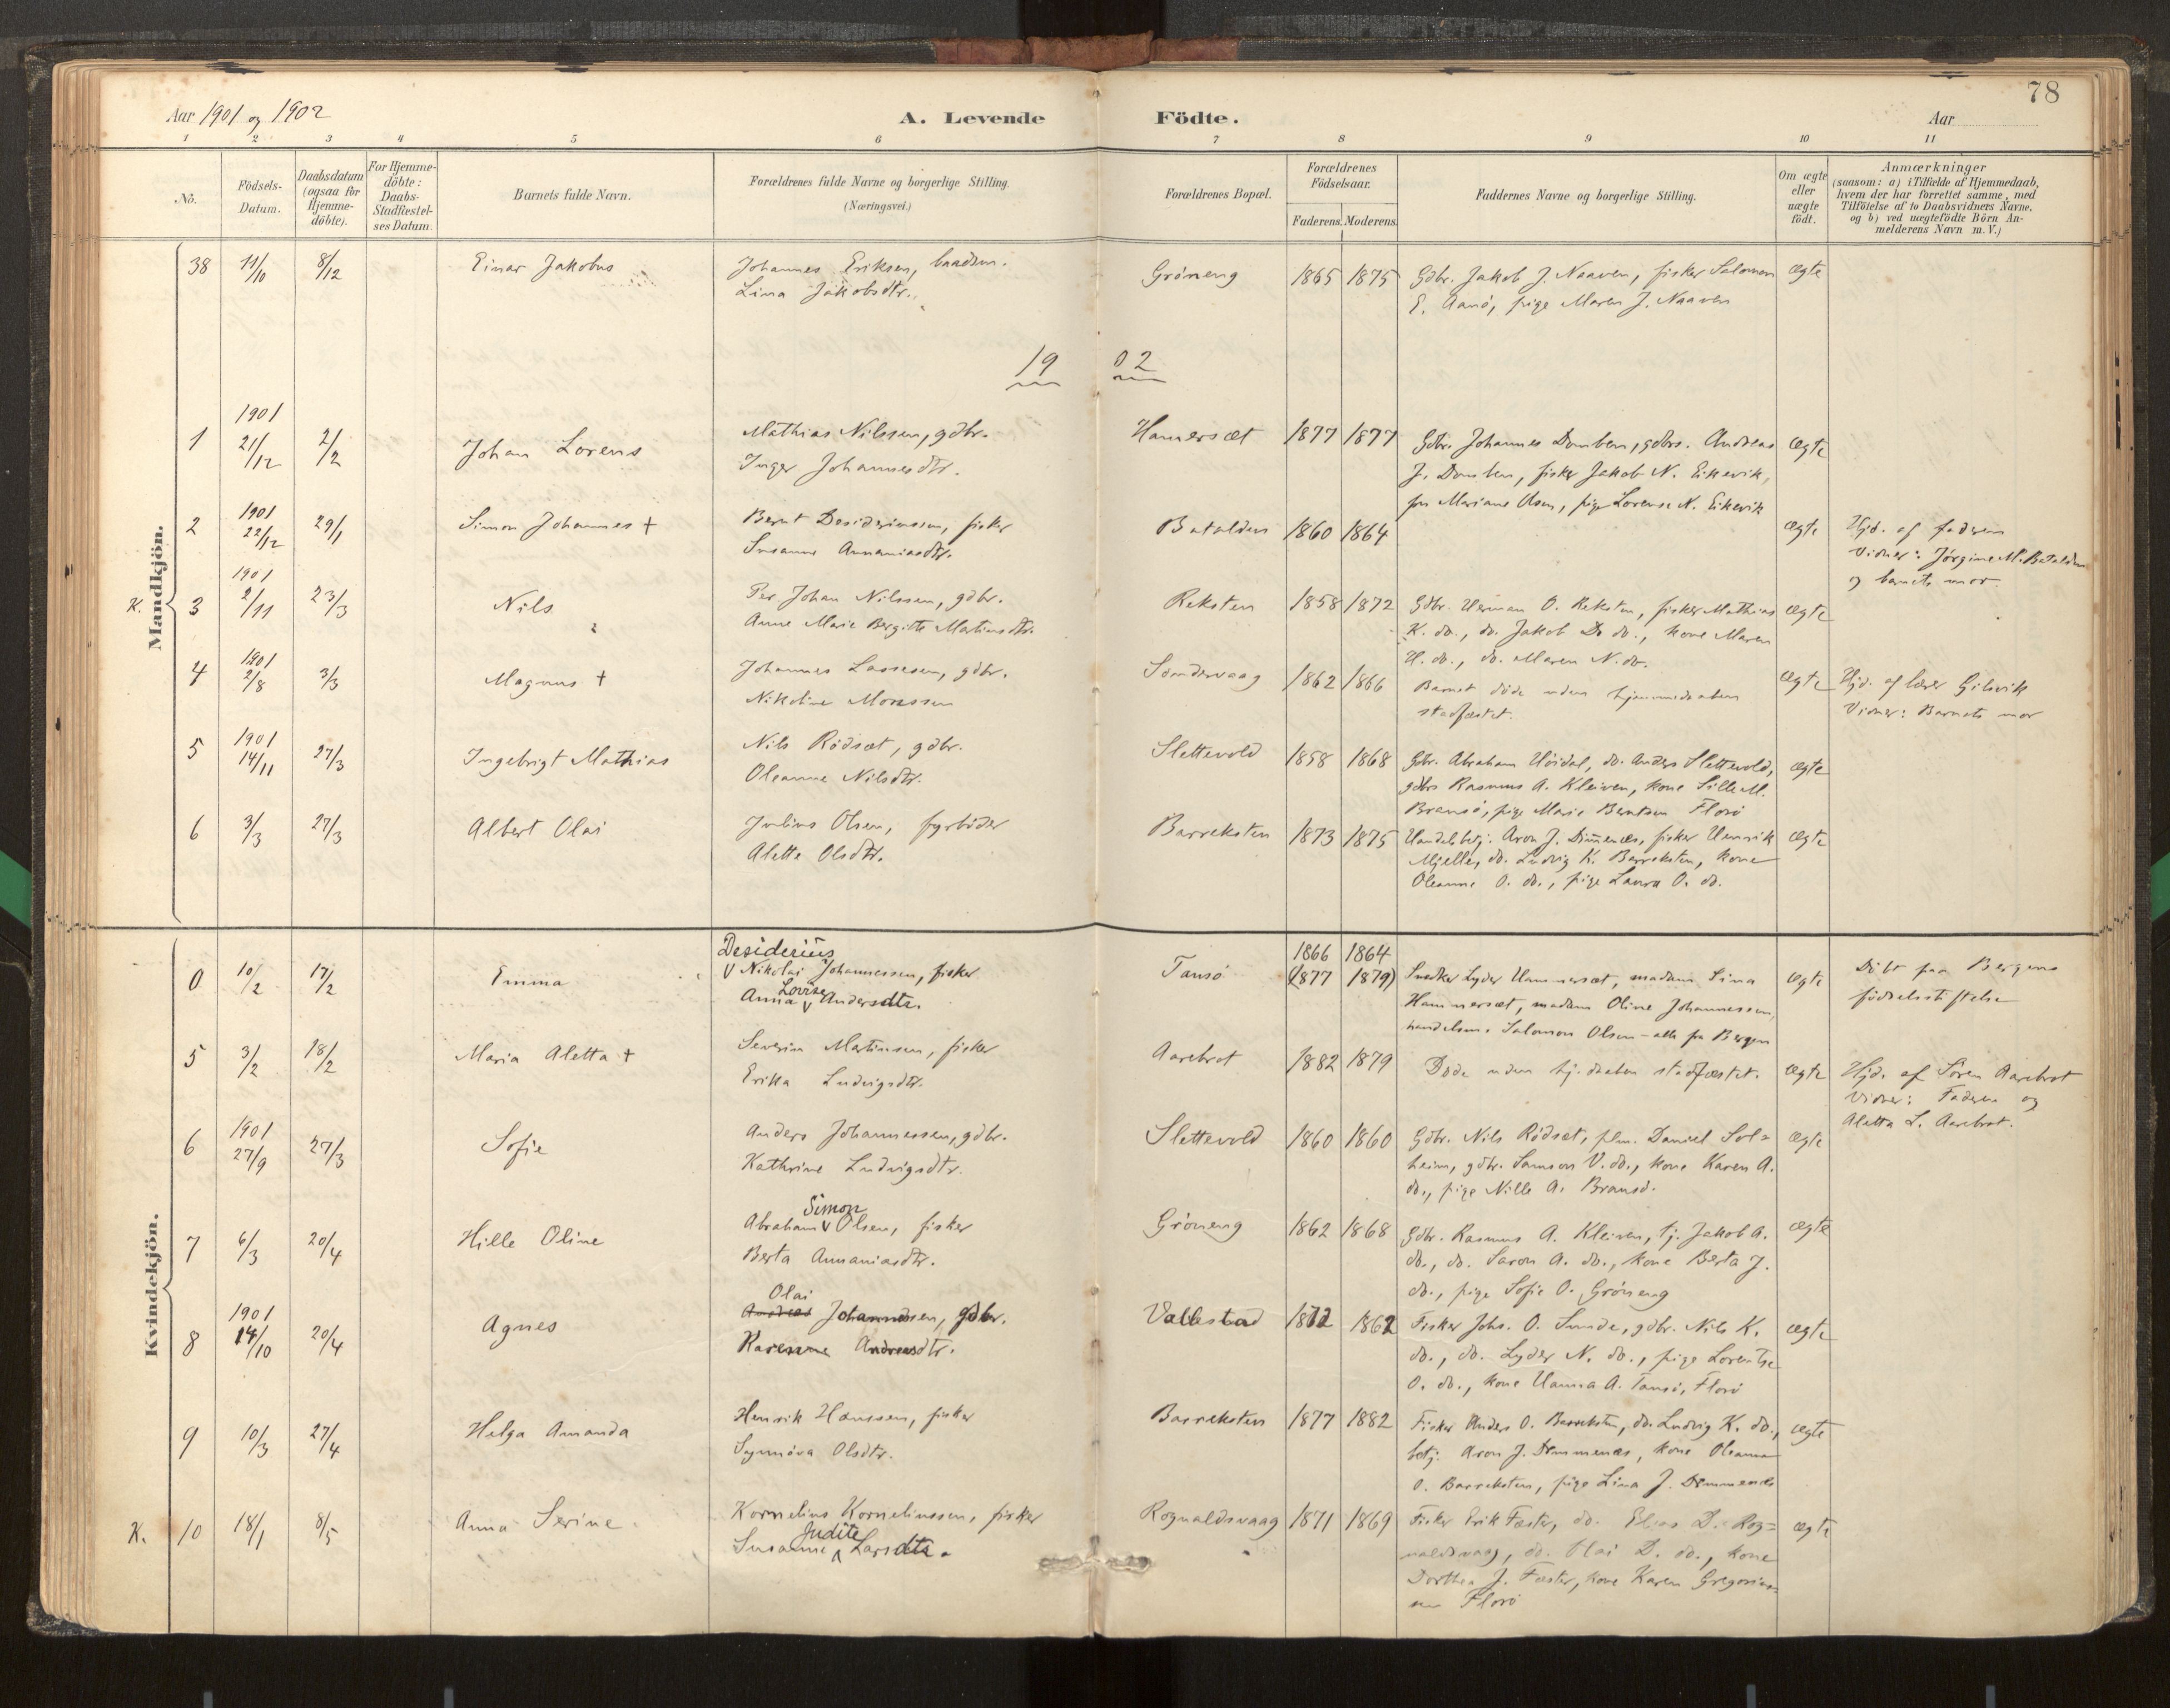 78
Aar 1901 og 1902
A. Levende Födte.
Aar
1 2 3 4 5 6 7 8 9 10 11
No.
Födsels-Datum.
Daabsdatum (ogsaa for Hjemme-döbte).
For Hjemme-döbte: Daabs-Stadfæstel-ses Datum.
Barnets fulde Navn.
Forældrenes fulde Navne og borgerlige Stilling.
(Næringsvei.)
Forældrenes Bopæl.
Forældrenes Födselsaar.
Faderens. Moderens.
Faddernes Navne og borgerlige Stilling.
Om ægte eller uægte födt.
Anmærkninger
(saasom: a) i Tilfælde af Hjemmedaab,
hvem der har forrettet samme, med
Tilföielse af to Daabsvidners Navne.
og b) ved uægtefödte Börn An-
melderens Navn m. V.)
Mandkjön.
38 11/10 8/12 Einar Jakobus Johannes Eriksen, baadsm. Gröneng 1865 1875 Gdbr. Jakob J. Naaven, fisker Salomon ægte
Lina Jakobsdtr. E. Aanö, pige Maren J. Naaven
1902
1 1901 21/12 2/2 Johan Lorens Mathias Nilssen, gdbr. Hamersæt 1877 1877 Gdbr. Johannes Domben, gdbrs. Andreas ægte
Inger Johannesdtr. J. Domben, fisker Jakob N. Eikevik,
Mariane Olsen, pige Lorense N. Eikevik
2 1901 22/12 29/1 Simon Johannes + Bernt Desideriussen, fisker Batalden 1860 1864 ægte Hjd. af faderen
Susanne Annaniasdtr. Vidner: Jörgine M. Batalden
og barnets mor.
K. 3 1901 2/11 23/3 Nils Per Johan Nilssen, gdbr. Reksten 1858 1872 Gdbr. Herman O. Reksten, fisker Mathias ægte
Anne Marie Bergitte Martinsdtr. K. do., do. Jakob D. do., kone Maren
H. do., do. Maren N. do.
4 1901 2/8 3/3 Magnus + Johannes Lassesen, gdbr. Söndervaag 1862 1866 Barnet döde uden hjemmedaaben ægte Hjd. af lærer Gilsvik
Nikoline Monssen stadfæstet. Vidner: Barnets mor
5 1901 14/11 27/3 Ingebrigt Mathias Nils Rödsæt, gdbr. Slettevold 1858 1868 Gdbr. Abraham Höidal, do. Anders Slettevold, ægte
Oleanne Nilsdtr. gdbrs Rasmus A. Kleiven, kone Sille M.
Bransö, pige Marie Berntsen Florö
6 3/3 27/3 Albert Olai Julius Olsen, fyrböder Barreksten 1873 1875 Handelsbetj. Aron J. Dimmenæs, fisker Henrik ægte
Alette Olsdtr. Mjelle, do. Ludvig K. Barreksten, kone
Oleanne O. do., pige Laura O. do.
Kvindekjön.
0 10/2 17/2 Emma Desiderius 1866 1864
Nikolai Johannessen, fisker Tansö (1877 1879) Snedker Lyder Hammersæt, madam Lina ægte Döbt paa Bergens
Anna Lovise Andersdtr. Hammersæt, madam Oline Johannessen, födselsstiftelse
handelsm. Salomon Olsen – alle fra Bergen
5 3/2 18/2 Maria Aletta + Severin Martinsen, fisker Aarebrot 1882 1879 Döde uden hj.daaben stadfæstet. ægte Hjd. af Sören Aarebrot
Erika Ludvigsdtr. Vidner: Faderen og
Aletta L. Aarebrot.
6 1901 27/9 27/3 Sofie Anders Johannessen, gdbr. Slettevold 1860 1860 Gdbr. Nils Rödsæt, plm. Daniel Sol= ægte
Kathrine Ludvigsdtr. heim, gdbr. Samson V. do., kone Karen A.
do., pige Nille A. Bransö.
7 6/3 20/4 Hille Oline Abraham Simon Olsen, fisker Gröneng 1862 1868 Gdbr. Rasmus A. Kleiven, tj. Jakob A. ægte
Berta Annaniasdtr. do., do. Saron A. do., kone Berta J.
do., pige Sofie O. Gröneng
8 1901 14/10 20/4 Agnes Olai
Andreas Johannessen, gdbr. Vallestad 1872 1862 Fisker Johs. O. Sunde, gdbr. Nils K. ægte
Karenine Andreasdtr. do., do. Lyder N. do., pige Lorentse
O. do., kone Hanna A. Tansö, Florö
9 10/3 27/4 Helga Amanda Henrik Hanssen, fisker Barreksten 1877 1882 Fisker Anders O. Barreksten, do. Ludvig K. do., ægte
Synnöva Olsdtr. betj. Aron J. Dimmenæs, kone Oleanne
O. Barreksten, pige Lina J. Dimmenæs
K. 10 18/1 8/5 Anna Serine Kornelius Korneliussen, fisker Rognaldsvaag 1871 1869 Fisker Erik Fæster, do. Elias D. Rog= ægte
Susanne Judite Larsdtr. naldsvaag, do. Olai D. do., kone
Dorthea J. Fæster, kone Karen Gregorius=
sen Florö